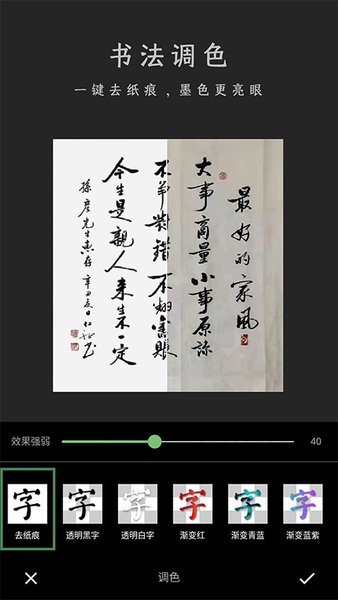 书法调色
一键去纸痕，墨色更亮眼
最好的家風
大事商量小事原谅
不争對錯不翻舊賬
今生是親人来生不一定
孫彦先生惠存 辛丑夏日
效果强弱 40
字 字 字 字 字 字
去纸痕 透明黑字 透明白字 渐变红 渐变青蓝 渐变蓝紫
调色